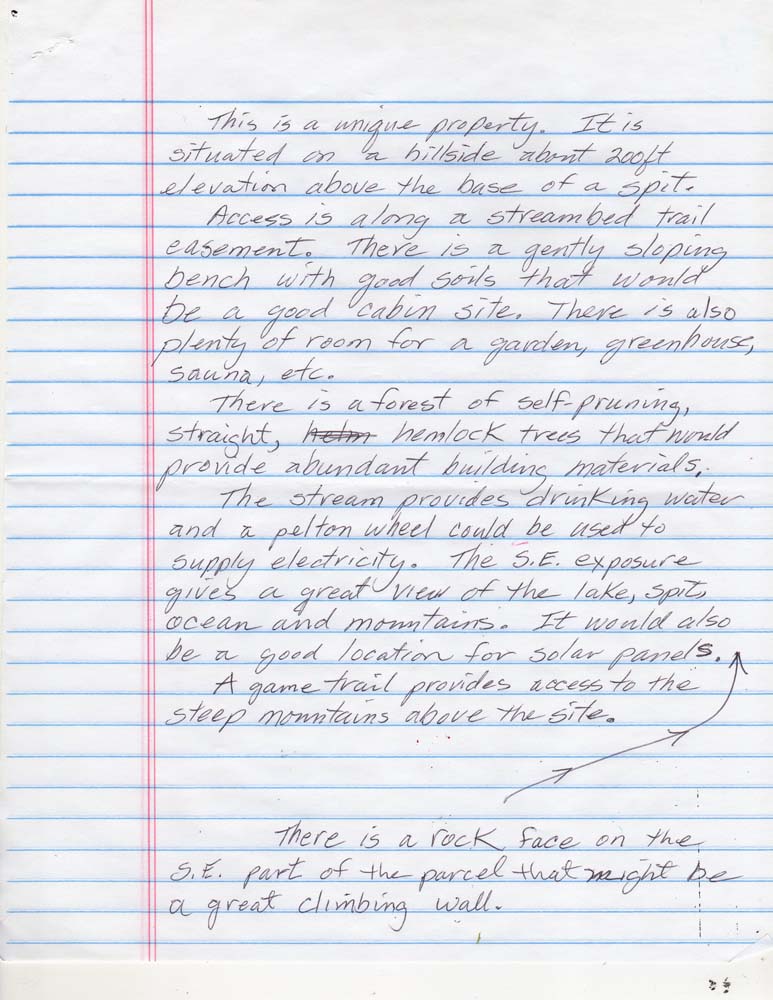 This is a unique property. It is
situated on a hillside about 200ft
elevation above the base of a spit.
Access is along a streambed trail
easement. There is a gently sloping
bench with good soils that would
be a good cabin site. There is also
plenty of room for a garden, greenhouse,
sauna, etc.
There is a forest of self-pruning,
straight, helm hemlock trees that would
provide abundant building materials.
The stream provides drinking water
and a pelton wheel could be used to
supply electricity. The S.E. exposure
gives a great view of the lake, spit,
ocean and mountains. It would also
be a good location for solar panels.
A game trail provides access to the
steep mountains above the site.
There is a rock face on the
S.E. part of the parcel that might be
a great climbing wall.